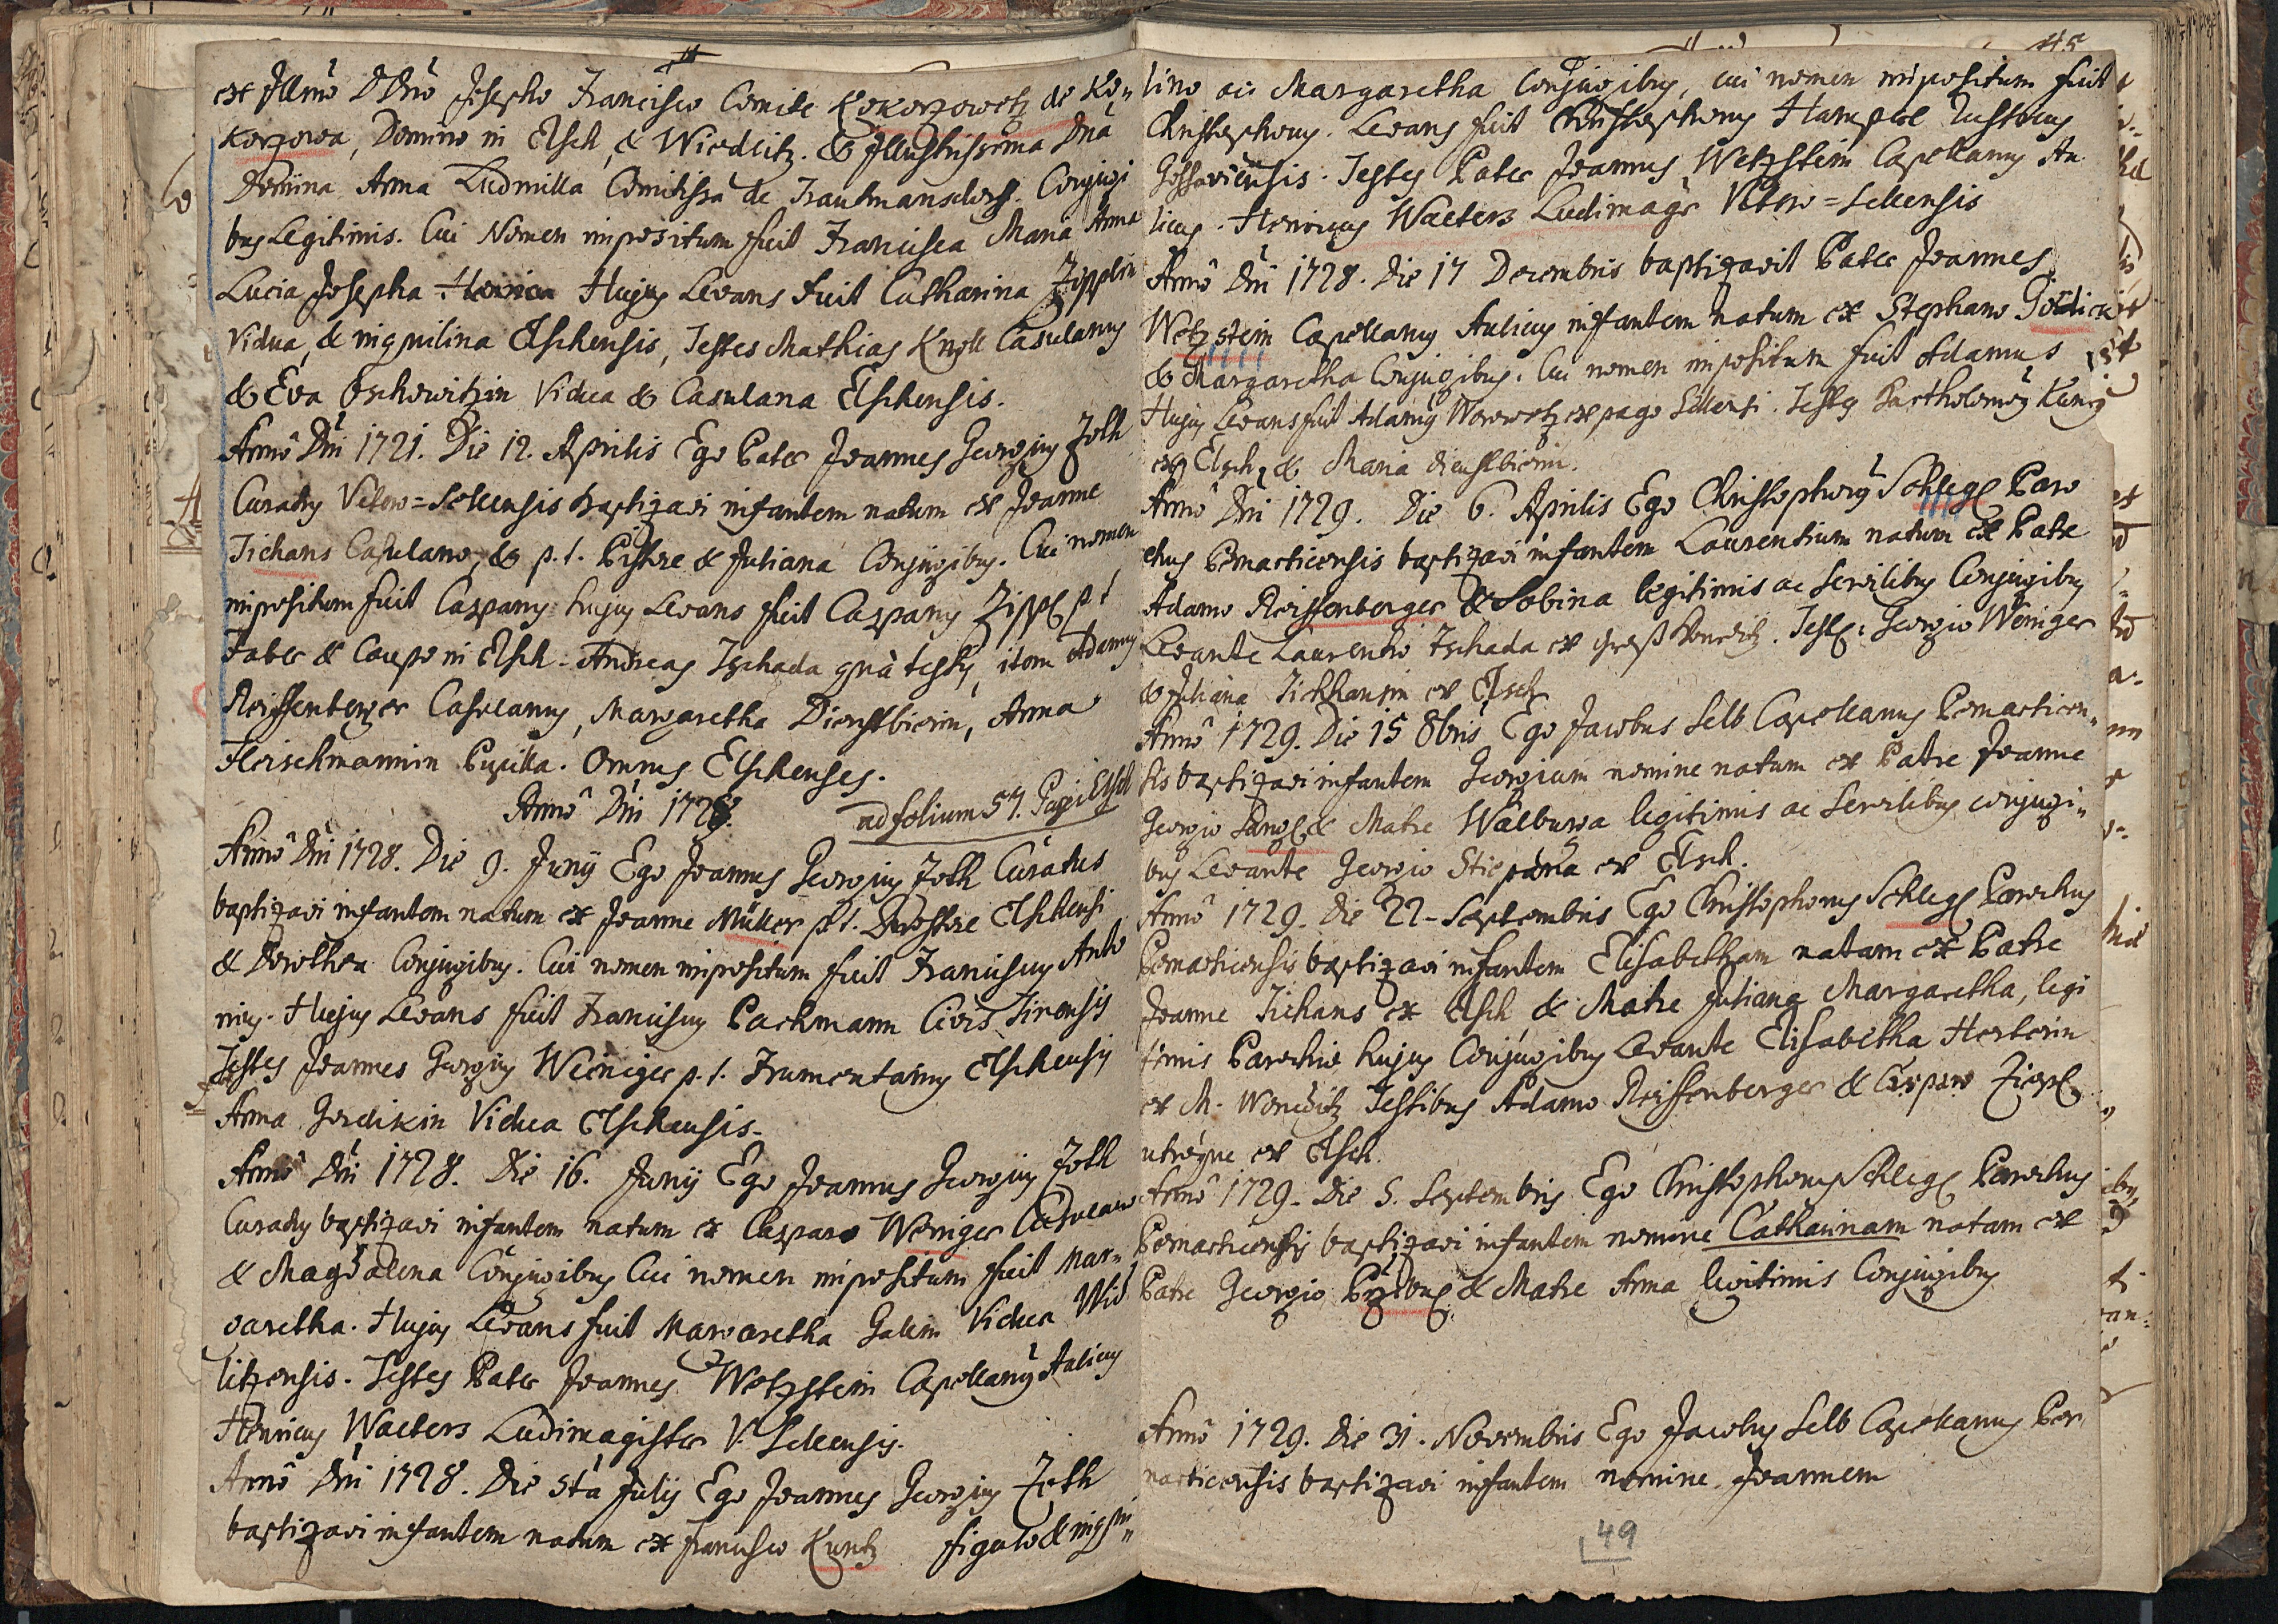 ex Illmo DDno Josepho Francisco Comite Kokorzowetz de Ko„
korzowa, Domino in Elsch, & Wiedlitz. & Illustrissima Dna
Domina Anna Ludmilla Comitissa de Trautmansdorff. Conjugi
bus Legitimis. Cui Nomen impositum fuit Francisca Maria Anna
Lucia Josepha Hujus Levans fuit Catharina Zipplin
Vidua, & inquilina Elschensis, Testes Mathias Knoll Casulanus
& Eva Oschowitzin Vidua & Casulana Elschensis.
Anno Dni 1721. Die 12. Aprilis Ego Pater Joannes Georgius Foth
Curatus Vetero=Sellensis baptizavi infantem natum ex Joanne
Tichans Casulano, & p.t. Pistore & Juliana Conjugibus. Cui nomen
impositum fuit Casparus hujus Levans fuit Casparus Zippl p t
Faber & Caupo in Elsch. Andreas Tschada qua testis, item Adamus
Reiffenberger Casulanus, Margaretha Dienstbierin, Anna
Fleischmannin Pupilla. Omnes Elschenses.
Anno Dni 1728. ad folium 57. Pagi Elsch
Anno Dni 1728. Die 9. Junij Ego Joannes Georgius Foth Curatus
baptizavi infantem natum ex Joanne Müller p.t. Quaestore Elschensi
& Dorothea Conjugibus. Cui nomen impositum fuit Franciscus Anto
nius. Hujus Levans fuit Franciscus Pachmann Civis Tinensis
Testes Joannes Georgius Weiniger p.t. Frumentarius Elschensis
Anna Gordikin Vidua Elschensis.
Anno Dni 1728. Die 16. Junij Ego Joannes Georgius Foth
Curatus baptizavi infantem natum ex Casparo Weniger Casulano
& Magdalena Conjugibus Cui nomen impositum fuit Mar„
garetha. Hujus Levans fuit Margaretha Galin Vidua Wid
litzensis. Testes Pater Joannes Wetzstein Capellanus Aulicus
Henricus Walters Ludimagister V. Sellensis.
Anno Dni 1728. Die 5ta Julij Ego Joannes Georgius Foth
baptizavi infantem natum ex Francisco Kuntz figulo & inqui„
lino ac Margaretha Conjugibus, cui nomen impositum fuit
Christophorus. Levans fuit Christophorus Hampl Rusticus
Gossaviensis. Testes Pater Joannes Wetzstein Capellanus Au
licus. Henricus Walters Ludimagr Vetero=Sellensis
Anno Dni 1728. Die 17 Decembris baptizavit Pater Joannes
Wetzstein Capellanus Aulicus infantem natum ex Stephano Gordick
& Margaretha Conjugibus. Cui nomen impositum fuit Adamus
Hujus Levans fuit Adamus Worowetz ex pago Sellensi. Testes Bartholomeus Kuntz
ex Elsch, & Maria Dienstbierin.
Anno Dni 1729. Die 6. Aprilis Ego Christophorus Schlegl Paro
chus Pernarticensis baptizavi infantem Laurentium natum ex Patre
Adamo Reiffenberger & Sabina legitimis ac Servilibus Conjugibus
Levante Laurentio Tschada ex Groß Wonetitz. Test: Georgio Weniger
& Juliana Tichhansin ex Elsch
Anno 1729. Die 15 8bris Ego Jacobus Selb Capellanus Pernarticen„
sis baptizavi infantem Georgium nomine natum ex Patre Joanne
Georgio Langl & Matre Walburga legitimis ac Servilibus conjugi„
bus Levante Georgio Stiepana ex Elsch.
Anno 1729. Die 22. Septembris Ego Christophorus Schlegl Parochus
Pernarticensis baptizavi infantem Elisabetham natam ex Patre
Joanne Tichans ex Elsch & Matre Juliana Margaretha, legi
timis Parochiae hujus Conjugibus Levante Elisabetha Herterin
ex M. Wonetitz Testibus Adamo Reiffenberger & Casparo Zippl
utrisque ex Elsch.
Anno 1729. Die 5. Septembris Ego Christophorus Schlegl Parochus
Pernarticensis baptizavi infantem nomine Catharinam natam ex
Patre Georgio & Matre Anna legitimis Conjugibus
Anno 1729. Die 31. Novembris Ego Jacobus Selb Capellanus Per
narticensis baptizavi infantem nomine Joannem
49